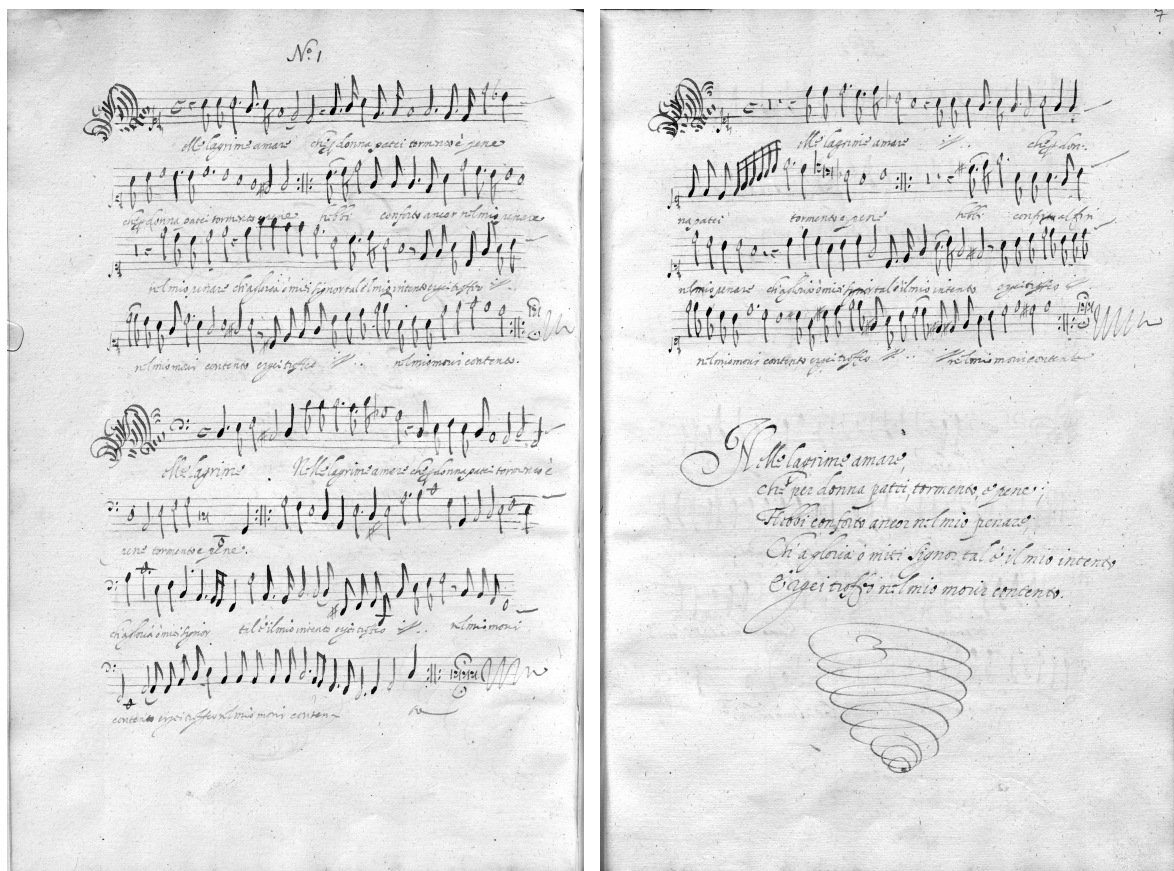 N.º 1
Nelle lagrime amare che p donna patei tormento è pene
che p donna patei tormento e pene hebbi conforto ancor nel mio penare
nel mio penare ch'a gloria ò miei signor tal è il mio intento
nel mio morir contento nel mio morir contento.
Nelle lagrime Nelle lagrime amare che p donna patei tormento è
pene tormento e pene.
ch'a gloria ò miei signor tal è il mio intento nel mio morir
contento nel mio morir conten to
7
Nelle lagrime amare che p don-
na patei tormento e pene hebbi conforto al fin
nel mio penare ch'a gloria ò miei signor tal è il mio intento
nel mio morir contento nel mio morir contento
Nelle lagrime amare,
che per donna patei, tormento, e pene;
Hebbi conforto ancor nel mio penare,
Ch'a gloria ò miei Signor tal è il mio intento
nel mio morir contento.